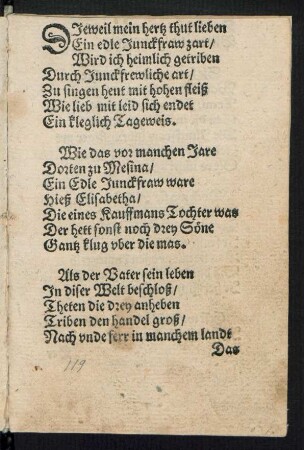 DJeweil mein hertz thut lieben
Ein edle Junckfraw zart/
Wird ich heimlich getriben
Durch Junckfrewliche art/
Zu singen heut mit hohen fleiß
Wie lieb mit leid sich endet
Ein kleglich Tageweis.
Wie das vor manchen Jare
Dorten zu Mesina/
Ein Edle Junckfraw ware
Hieß Elisabetha/
Die eines Kauffmans Tochter was
Der hett sonst noch drey Söne
Gantz klug vber die mas.
Als der Vater sein leben
In diser Welt beschloß/
Theten die drey anheben
Triben den handel groß/
Nach vnde ferr in manchem landt
Das
119